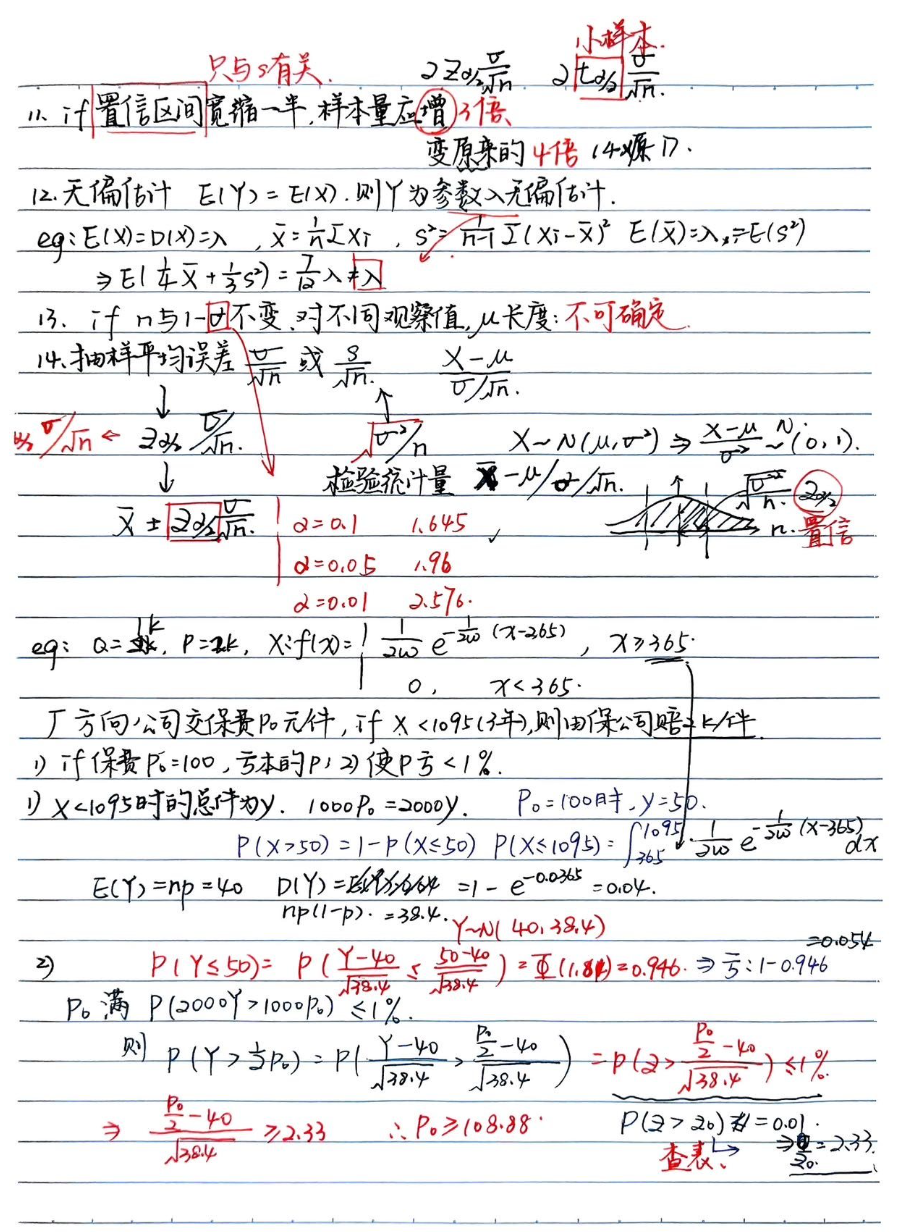 小样本.
只与s有关. 2Zα/2 σ/√n 2 tα/2 σ/√n.
11. if 置信区间宽缩一半, 样本量应增3倍.
变原来的4倍 (4x原).
12. 无偏估计 E(Y) = E(X). 则Y为参数λ无偏估计.
eg: E(X)=D(X)=λ , x̄=1/n Σxi , s²=1/(n-1) Σ(xi-x̄)² E(x̄)=λ, =E(s²)
⇒ E(1/4 x̄ + 1/3 s²) = 7/12 λ ≠ λ
13. if n与1-α不变, 对不同观察值, μ长度: 不可确定.
14. 抽样平均误差 σ/√n 或 s/√n. X-μ / σ/√n.
↓
σ/√n ← Zα/2 σ/√n. √σ²/n X~N(μ,σ²) ⇒ X-μ/σ² ~N(0,1).
↓ 检验统计量 x̄-μ/σ/√n. √σ²/n. Zα/2
x̄ ± Zα/2 σ/√n. α=0.1 1.645 ✓ n. 置信
α=0.05 1.96
α=0.01 2.576.
eg: Q=1k, P=2k, X:f(x)= 1/200 e^-1/200 (x-365) , x≥365.
0, x<365.
厂方向公司交保费P0元/件, if X<1095(3年), 则由保公司赔2k/件.
1) if保费P0=100, 亏本的P; 2) 使P亏<1%.
1) X<1095时的总件为Y. 1000P0=2000Y. P0=100时, Y=50.
P(X>50)=1-P(X≤50) P(X≤1095)=∫365^1095 1/200 e^-1/200 (x-365) dx
E(Y)=np=40 D(Y)= =1-e^-0.0365=0.04.
np(1-p).=38.4.
Y~N(40,38.4)
=0.054
2) P(Y≤50)= P(Y-40/√38.4 ≤ 50-40/√38.4)=Φ(1.61)=0.946. ⇒ 亏:1-0.946
P0满 P(2000Y>1000P0) ≤1%.
则 P(Y>1/2 P0) = P(Y-40/√38.4 > P0/2-40/√38.4) =P(Z> P0/2-40/√38.4)≤1%
⇒ P0/2-40/√38.4 ≥2.33 ∴P0≥108.88. P(Z>Z0)=0.01.
查表. ⇒Z0=2.33.